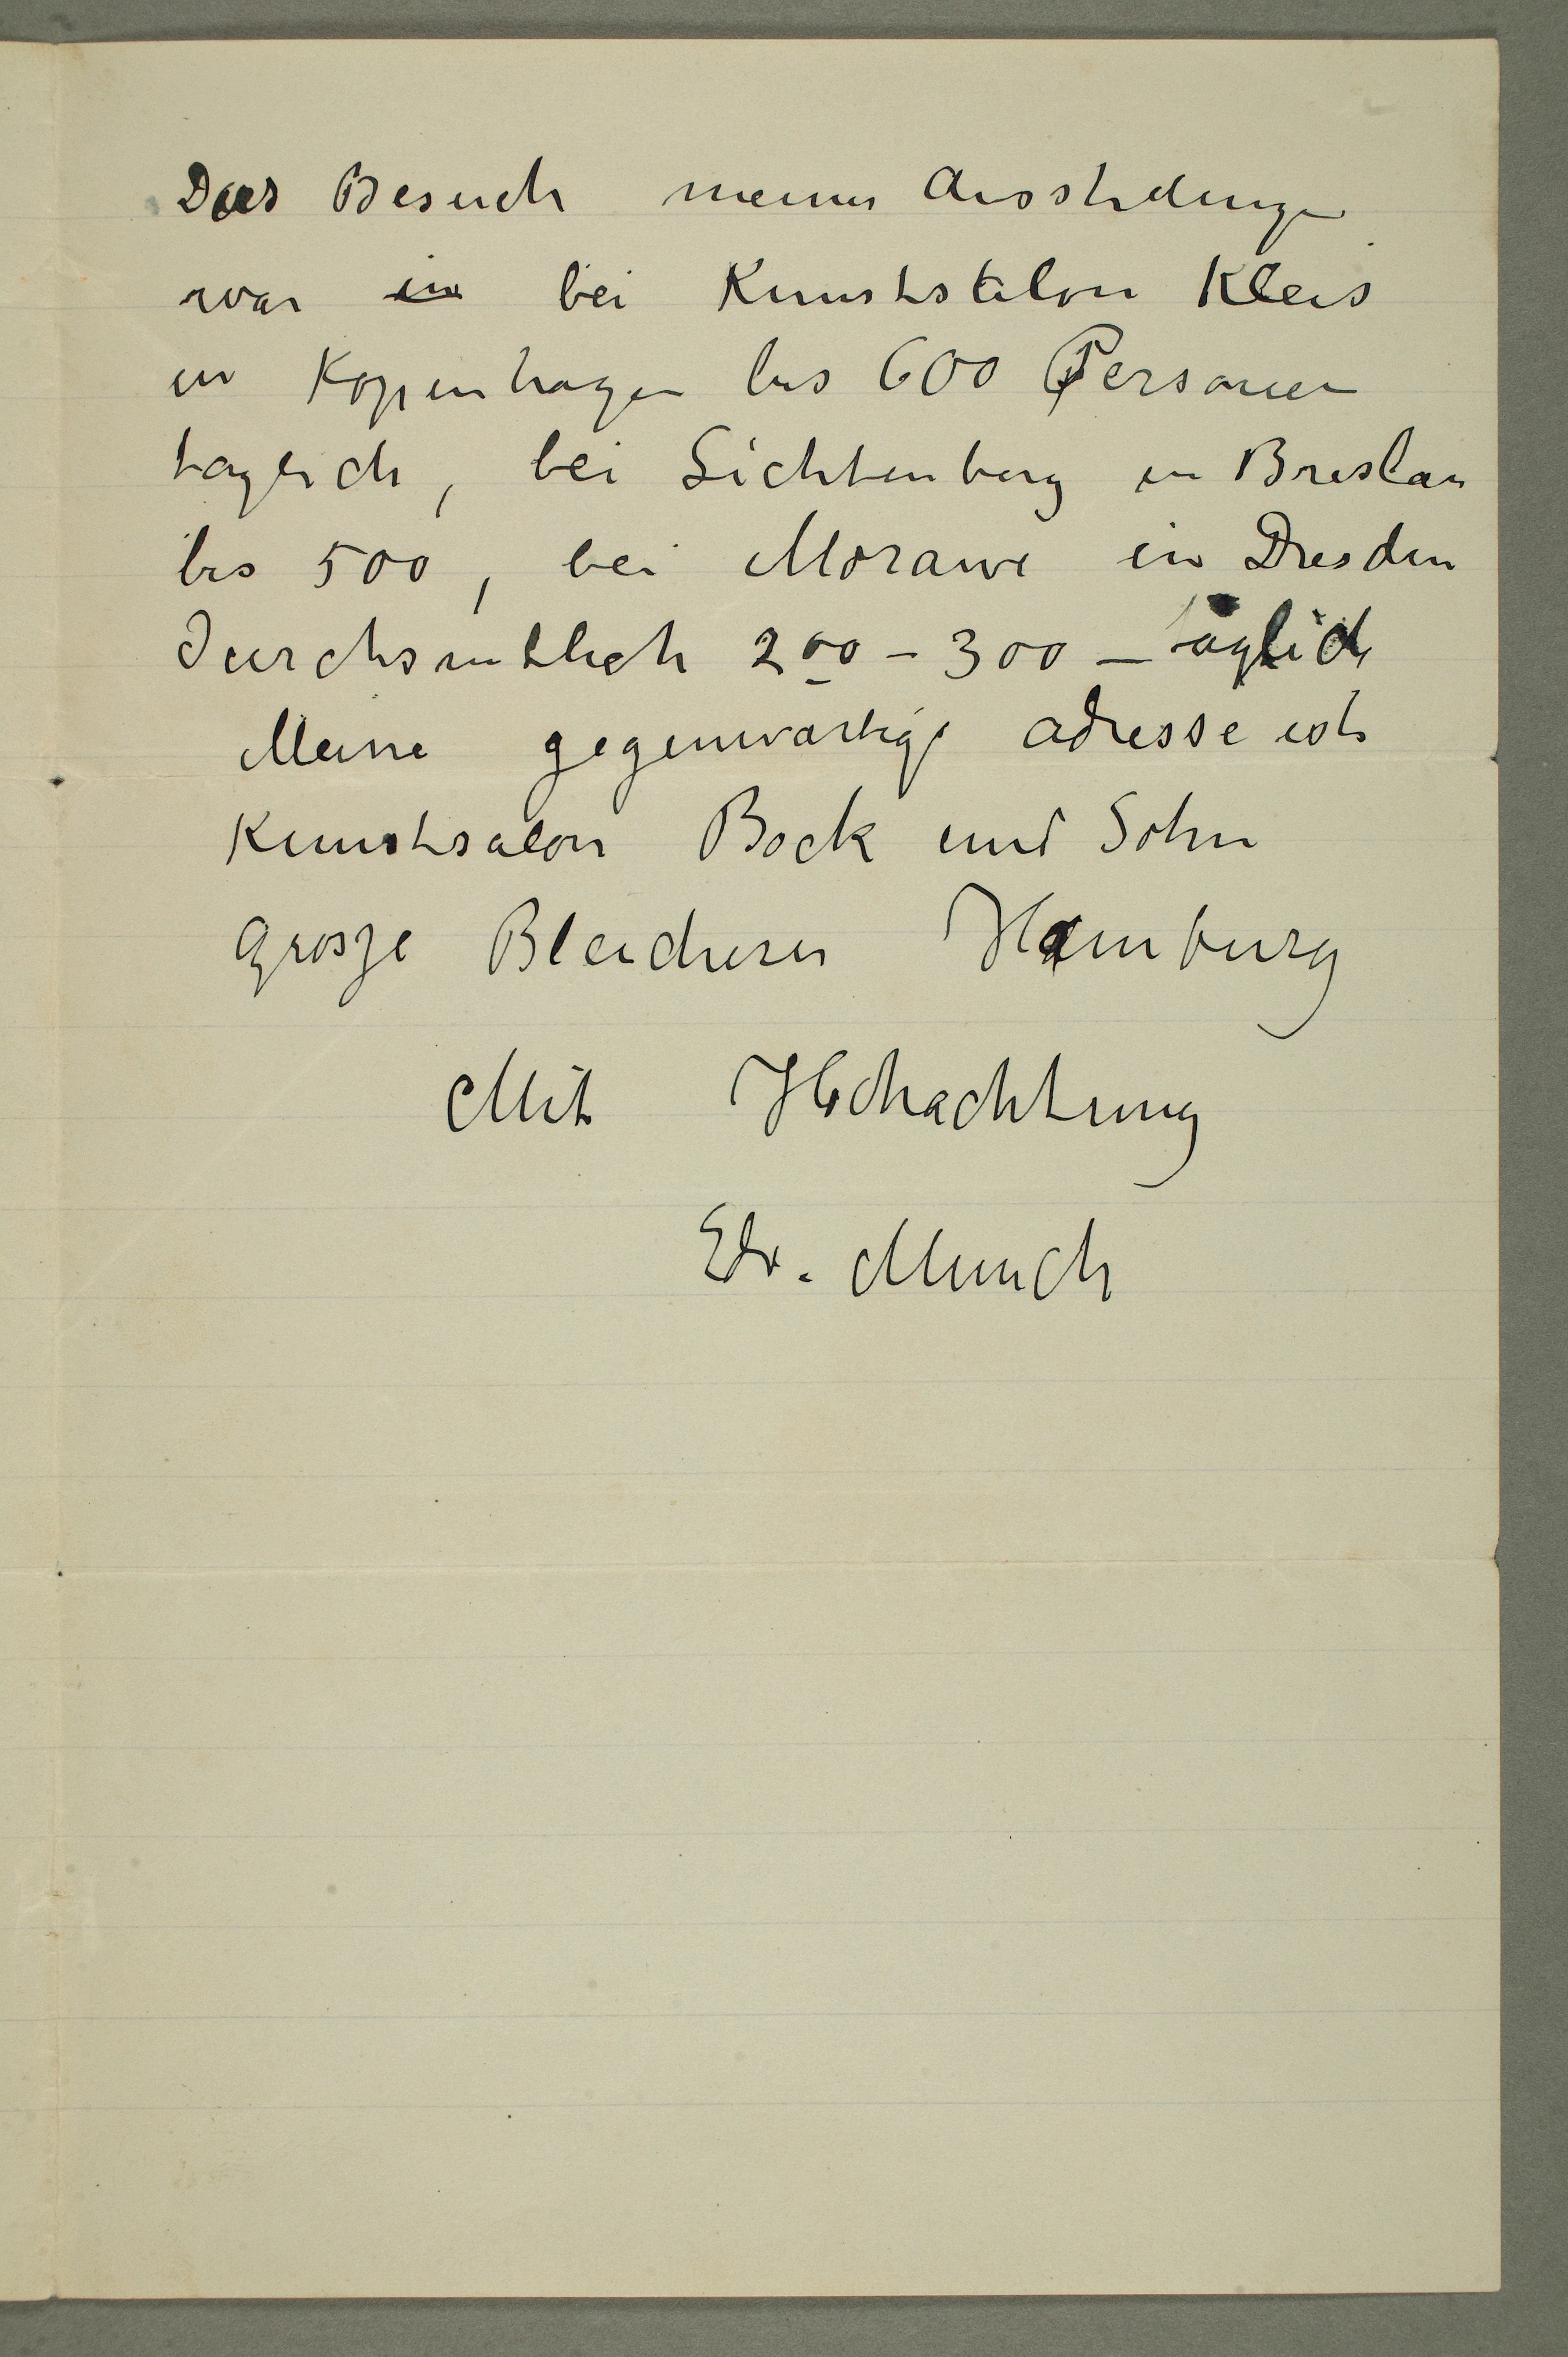 Das Besuch meiner Ausstellungen
war in bei Kunstsalon Kleis
in Kopenhagen bis 600 Personen
taglich, bei Lichtenberg in Breslau
bis 500, bei Morawe in Dresden
durchsnitlich 200 – 300 – täglich
Meine gegenwartige adresse ist
Kunstsalon Bock und Sohn
Grosze Bleicherei Hamburg
Mit Hochachtung
Edv. Munch